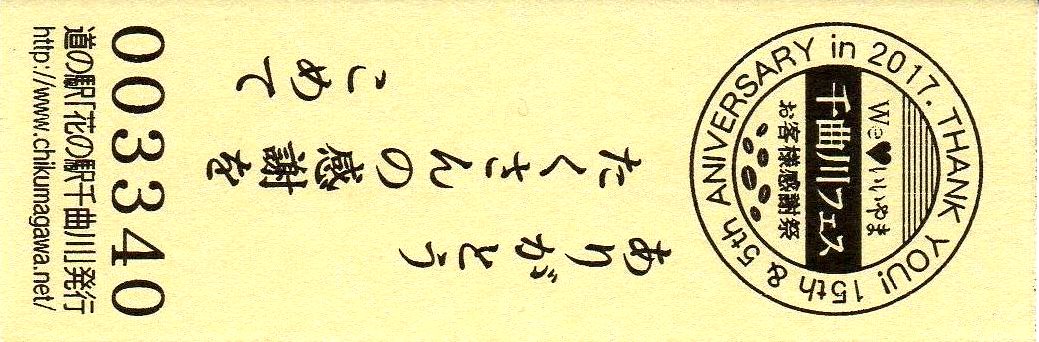 THANK YOU! 15th & 5th ANIVERSARY in 2017.
We♥いいやま
千曲川フェス
お客様感謝祭
ありがとう
たくさんの感謝を
こめて
003340
道の駅「花の駅千曲川」発行
http://www.chikumagawa.net/